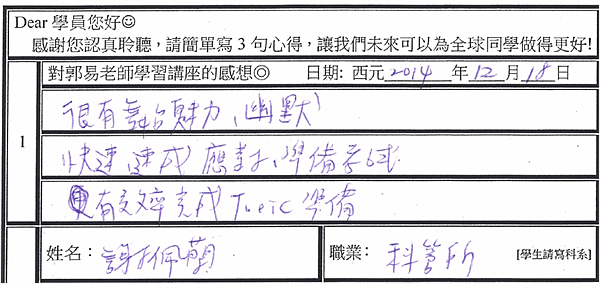 Dear 學員您好☺
感謝您認真聆聽，請簡單寫 3 句心得，讓我們未來可以為全球同學做得更好!
對郭易老師學習講座的感想◎ 日期: 西元 2014 年 12 月 18 日
1
很有舞台魅力、幽默
快速速成應對、準備考試
更有效率完成 Toeic 準備
姓名： 謝佩 職業： 科管所 [學生請寫科系]